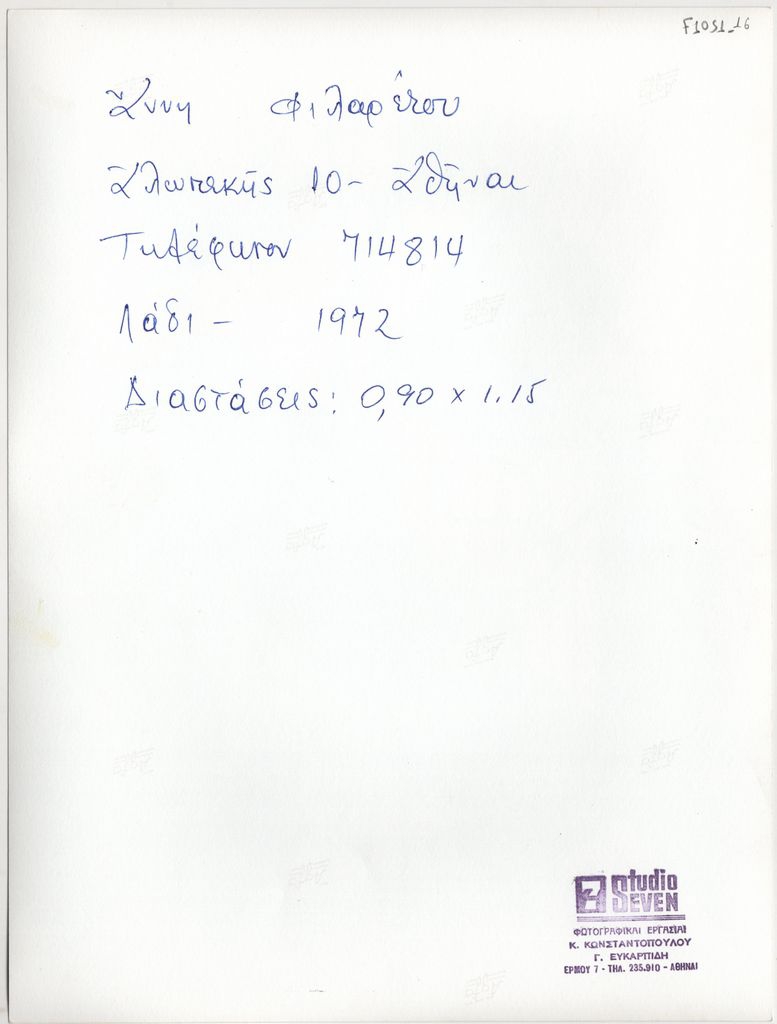 F1051_16
Ἄννη Φιλαρέτου
Ἀλωπεκῆς 10- Ἀθῆναι
Τηλέφωνον 714814
Λάδι - 1972
Διαστάσεις: 0,90 x 1.15
7 Studio SEVEN
ΦΩΤΟΓΡΑΦΙΚΑΙ ΕΡΓΑΣΙΑΙ
Κ. ΚΩΝΣΤΑΝΤΟΠΟΥΛΟΥ
Γ. ΕΥΚΑΡΠΙΔΗ
ΕΡΜΟΥ 7 - ΤΗΛ. 235.910 - ΑΘΗΝΑΙ